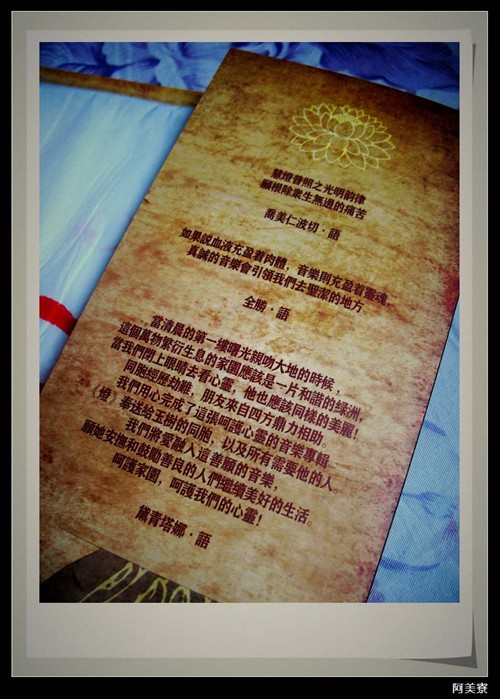 慧燈普照之光明韵律
願根除衆生無邊的痛苦
喬美仁波切·語
如果說血液充盈着肉體，音樂則充盈着靈魂。
真誠的音樂會引領我們去聖潔的地方。
全勝·語
當清晨的第一縷曙光親吻大地的時候，
這個萬物繁衍生息的家園應該是一片和諧的綠洲，
當我們閉上眼睛去看心靈，他也應該同樣的美麗！
同胞經歷劫難，朋友來自四方鼎力相助。
我們用心完成了這張呵護心靈的音樂專輯
《燈》奉送給玉樹的同胞，以及所有需要他的人。
我們將愛融入這善願的音樂，
願她安撫和鼓勵善良的人們繼續美好的生活。
呵護家園，呵護我們的心靈！
黛青塔娜·語
阿美寮